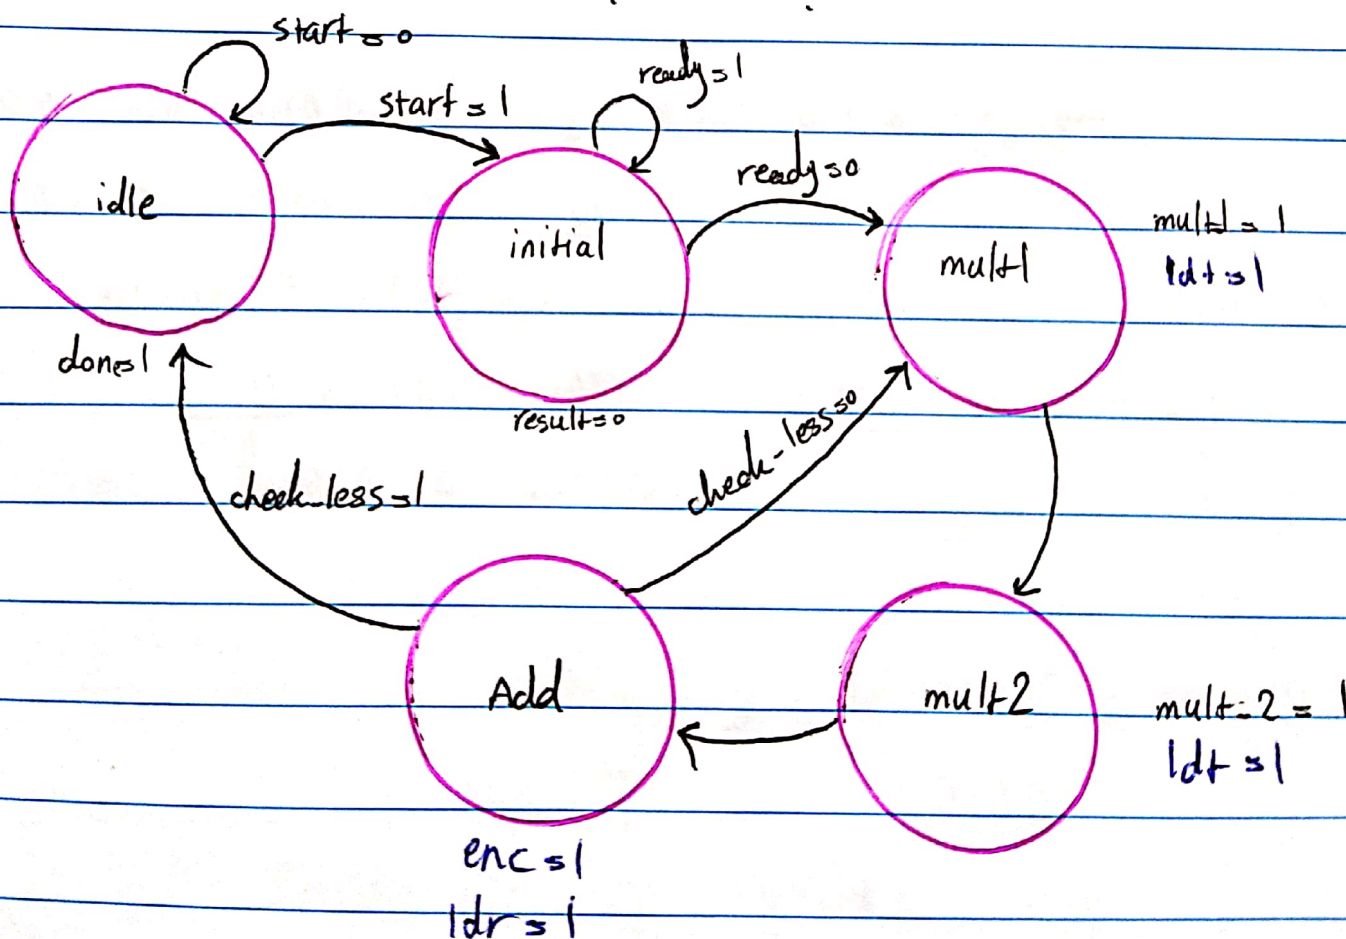 start=0
start=1
ready=1
ready=0
idle
initial
mult1
mult1=1
ldt=1
done=1
result=0
check-less=1
check-less=0
Add
mult2
mult-2=1
ldt=1
enc=1
ldr=1